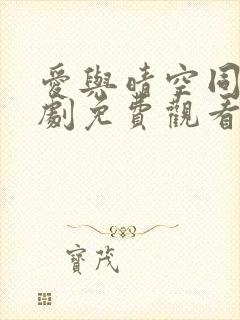 愛與晴空同
劇免費觀看
寶茂